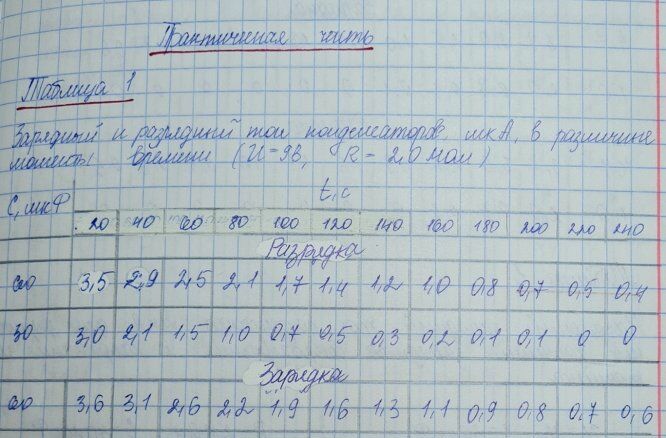 Практическая часть
Таблица 1
Зарядный и разрядный ток конденсаторов, мкА, в различные
моменты времени (U=9В, R = 2,0 мОм)
C, мкФ t, c
20 40 60 80 100 120 140 160 180 200 220 240
Разрядка
60 3,5 2,9 2,5 2,1 1,7 1,4 1,2 1,0 0,8 0,7 0,5 0,4
30 3,0 2,1 1,5 1,0 0,7 0,5 0,3 0,2 0,1 0,1 0 0
Зарядка
60 3,6 3,1 2,6 2,2 1,9 1,6 1,3 1,1 0,9 0,8 0,7 0,6